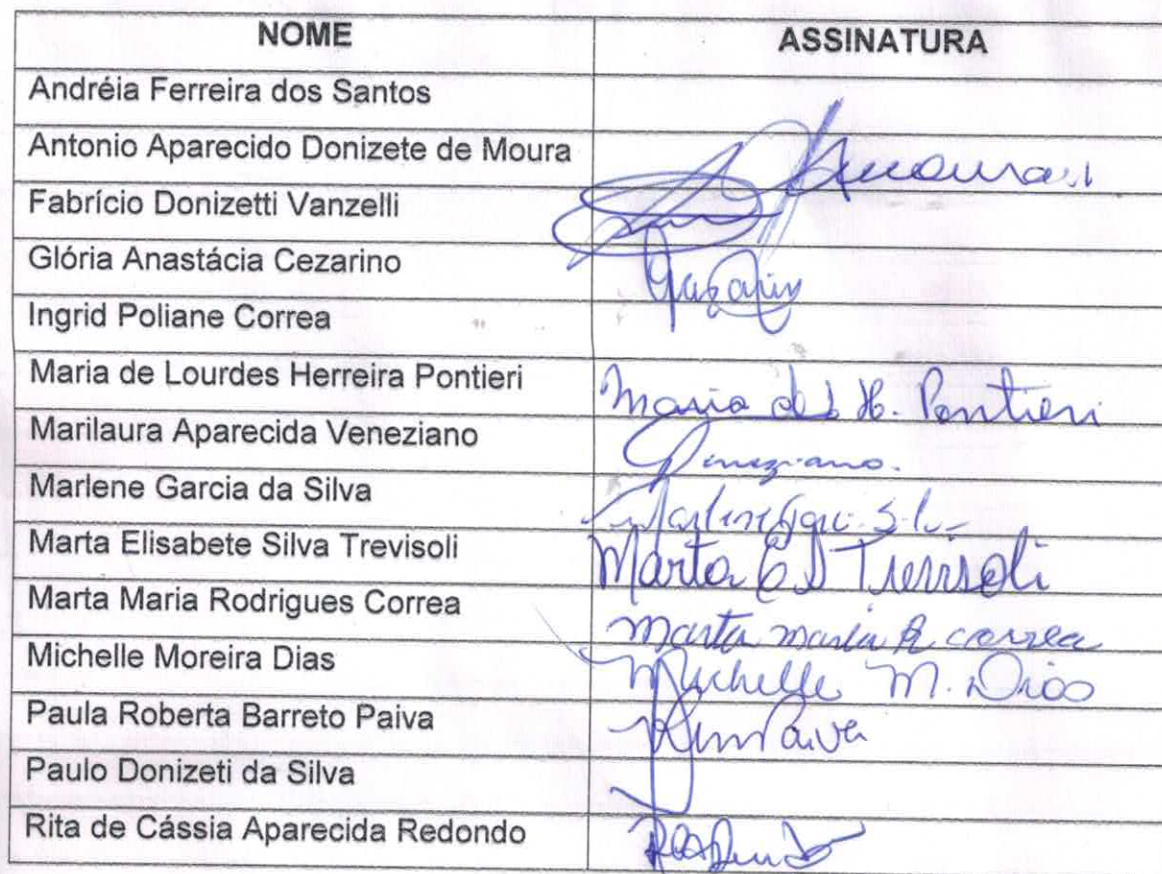 NOME ASSINATURA
Andréia Ferreira dos Santos
Antonio Aparecido Donizete de Moura
Fabrício Donizetti Vanzelli
Glória Anastácia Cezarino
Ingrid Poliane Correa
Maria de Lourdes Herreira Pontieri Maria de L H. Pontieri
Marilaura Aparecida Veneziano Veneziano.
Marlene Garcia da Silva
Marta Elisabete Silva Trevisoli Marta E S Trevisoli
Marta Maria Rodrigues Correa marta maria R correa
Michelle Moreira Dias Michelle M. Dias
Paula Roberta Barreto Paiva Paiva
Paulo Donizeti da Silva
Rita de Cássia Aparecida Redondo